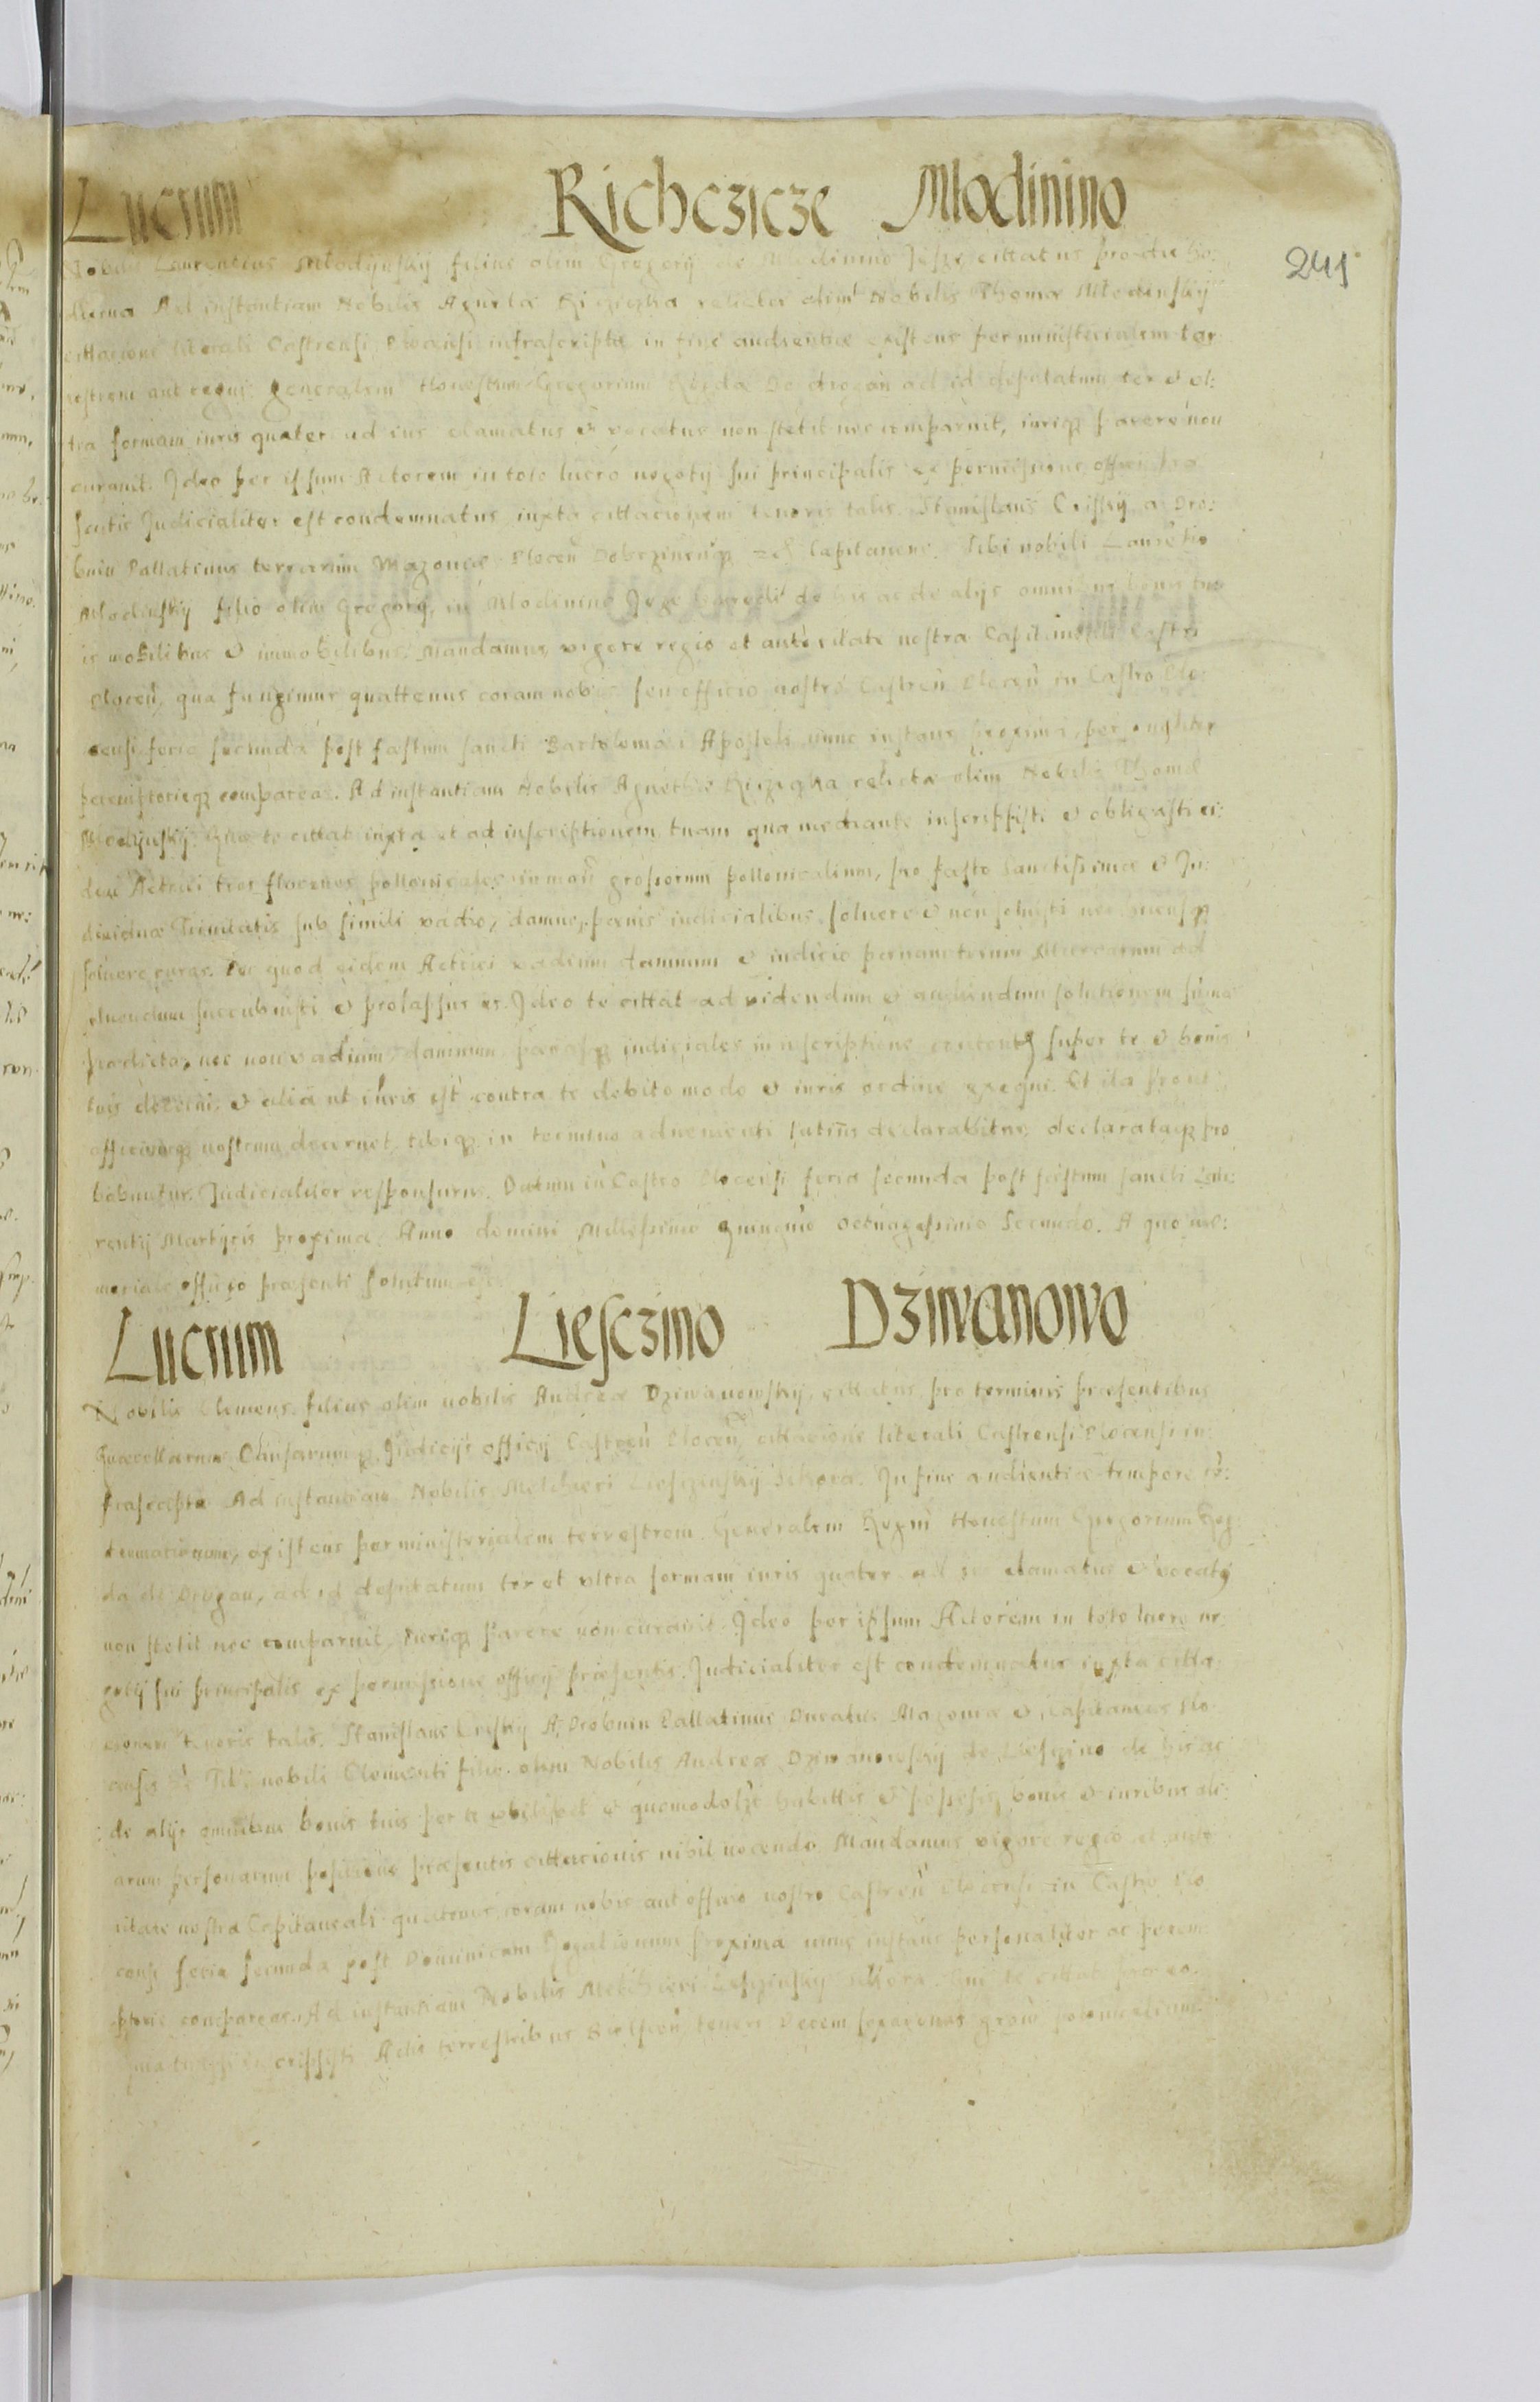 Lucrum Richczicze Mlodinino
241
Nobilis Laurencius Mlodynskÿ filius olim Gregorÿ de Mlodinino Jeze cittatus pro die ho:
dierna Ad instantiam Nobilis Agnetæ relictæ olim Nobilis Thomæ Mlodinskÿ
cittacione literali Castrensi Plocensi infrascripta in fine audientiæ existens per ministerialem ter
restrem aut regni generalem Honestum Gregorium de Drogan ad id deputatum ter & ul:
tra formam iuris quater ad ius clamatus & vocatus non stetit nec comparuit, iuriqз parere non
curauit. Ideo per ipsum Actorem in toto lucro negotÿ sui principalis ex permissione officÿ præ
sentis Judicialiter est condemnatus iuxta cittacionem tenoris talis. Stanislaus Criskÿ a Dro:
bnin Pallatinus terrarum Mazouiæ Plocen Dobrzinensqз &c Capitaneus. Tibi nobili Laurentio
Mlodinskÿ filio olim Gregorÿ, in Mlodinino Jeze hæredi de his ac de alÿs omnibus bonis tu
is mobilibus & immobilibus, Mandamus vigore regio et autoritate nostra Capitaneali Castri
Plocen, qua fungimur quattenus coram nobis seu officio nostro Castren Plocen in Castro Plo:
censi feria secunda post fæstum sancti Bartolomæi Apostoli nunc instans proxima, personaliter
peremptorieqз compareas. Ad instantiam Nobilis Agnethæ relictæ olim Nobilis Thomæ
Mlodynskÿ. Quæ te cittat iuxta et ad inscriptionem tuam qua mediante inscripsisti & obligasti ei:
dem Actrici tres florenos pollonicales grossorum pollonicalium, pro fæsto Sanctissimæ & In:
diuiduæ Trinitatis sub simili vadio, damno, pænis iudicialibus soluere & non soluisti nec hucusqз
soluere curas. Per quod eidem Actrici vadium damnum & iudicio ad
luendum succubuisti & prolapsus es. Ideo te cittat ad videndum & audiendum solutionem summæ
prædictæ, nec non vadium, damnum, pænasqз iudiciales in inscriptione super te & bonis
tuis decerni, & alia ut iuris est contra te debito modo & iuris ordine exequi. Et ita prout
officiumqз nostrum decernet, tibiqз in termino aduenienti latius declarabitur, declarataqз pro
babuntur. Judicialiter responsurus. Datum in Castro Plocensi feria secunda post fæstum sancti Lau:
rentÿ Martÿris proxima Anno domini Millesimo quingmo octuagesimo Secundo. A quo me:
moriale officio præsenti solutum est.
Lucrum Liesczino Dziwanowo
Nobilis Clemens filius olim nobilis Andreæ Dziwanowskÿ, cittatus pro terminis præsentibus
Querellarum Causarumqз Judicÿs officÿ Castren Plocen, cittacione literali Castrensi Plocensi in:
frascripta Ad instantiam Nobilis Melchieri Liesczinskÿ Sikora. In fine audientiæ tempore
existens per ministerialem terrestrem Generalem Regni Honestum Gregorium
da de Drogan, ad id deputatum ter et vltra formam iuris quater ad ius clamatus & vocatus
non stetit nec comparuit, iuriqз parere non curauit. Ideo per ipsum Actorem in toto lucro ne:
gotÿ sui principalis ex permissione officÿ præsentis. Judicialiter est condemnatus iuxta citta
cionem tenoris talis. Stanislaus Criskÿ A Drobnin Pallatinus Ducatus Mazouiæ & Capitaneus Plo
censis &c Tibi nobili Clementi filio olim Nobilis Andreæ Dziwanowskÿ de Liesczino de his ac
de alÿs omnibus bonis tuis per te vbilibet & quomodolibet habittis & possessis bonis & iuribus ali:
arum personarum positione præsentis cittacionis nihil nocendo. Mandamus vigore regio et auto
ritate nostra Capitaneali quatenus coram nobis aut officio nostro Castren Plocensi in Castro Plo
censi feria secunda post Dominicam Rogationum proxima nunc instans personaliter ac perem
ptorie compareas. Ad instantiam Nobilis Melchieri Liesczinskÿ Sikora. Qui te cittat pro eo
Actis terrestribus Decem sexagenas